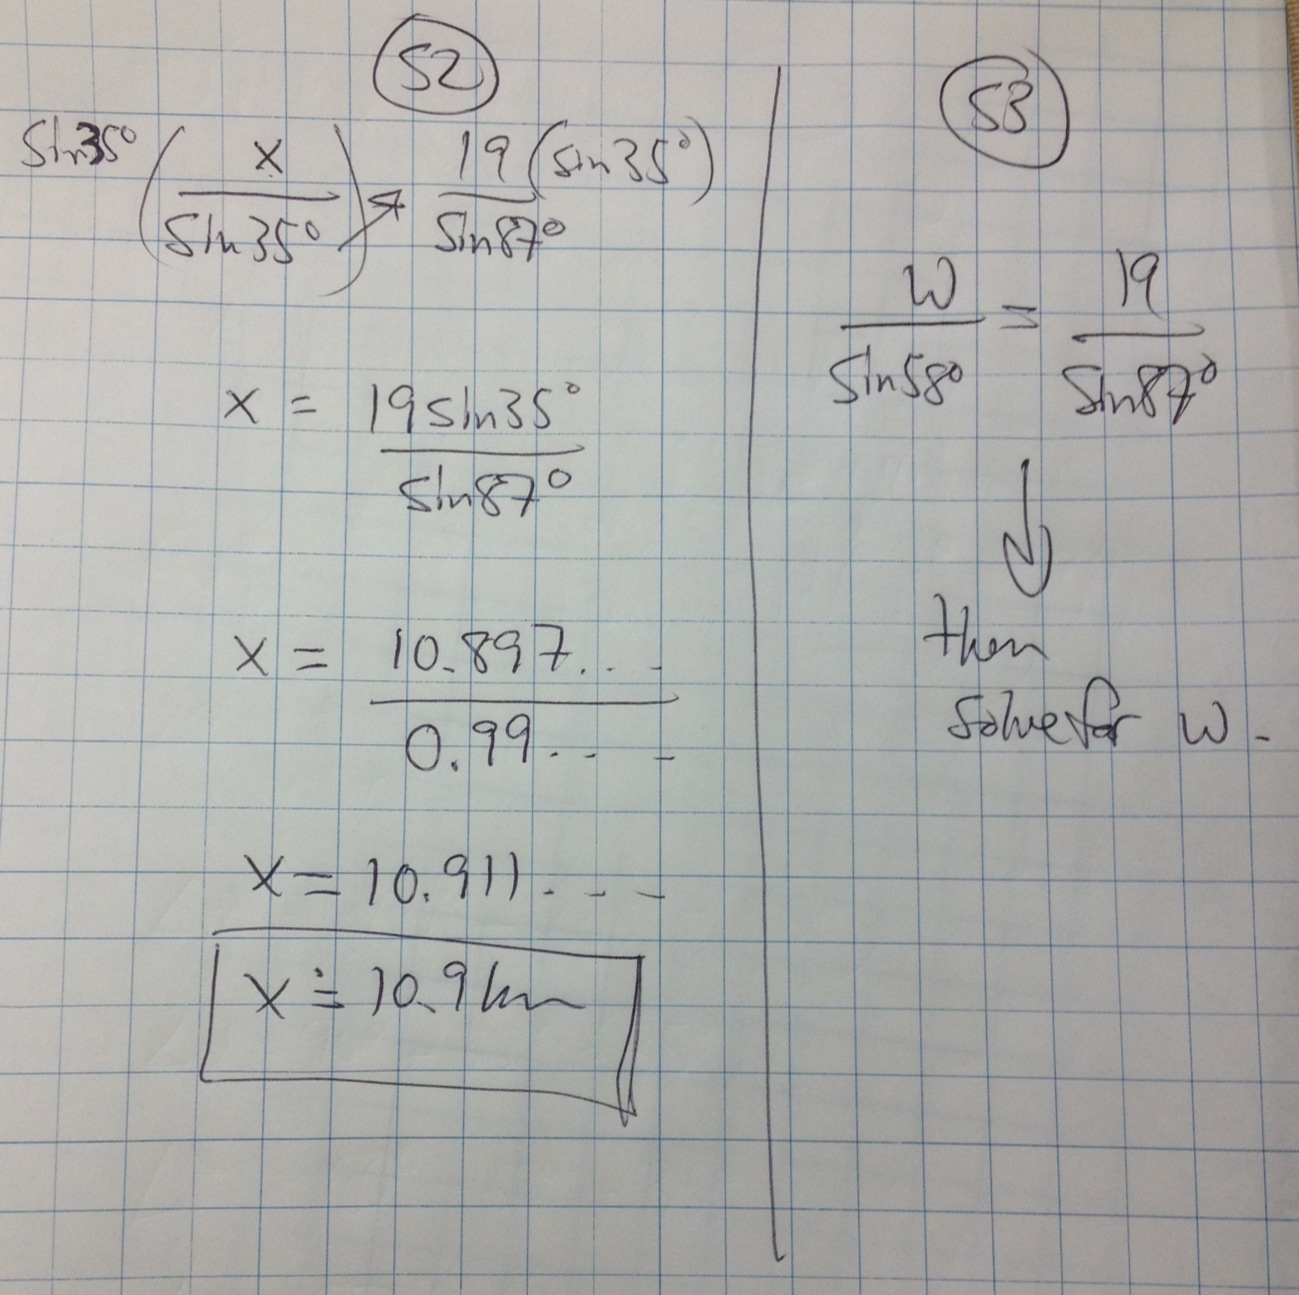 52
sin35° (x/sin35°) = 19/sin87° (sin35°)
x = 19sin35°/sin87°
x = 10.897.../0.99...
x = 10.911...
x ≐ 10.9km
53
w/sin58° = 19/sin87°
↓
then
solve for w.